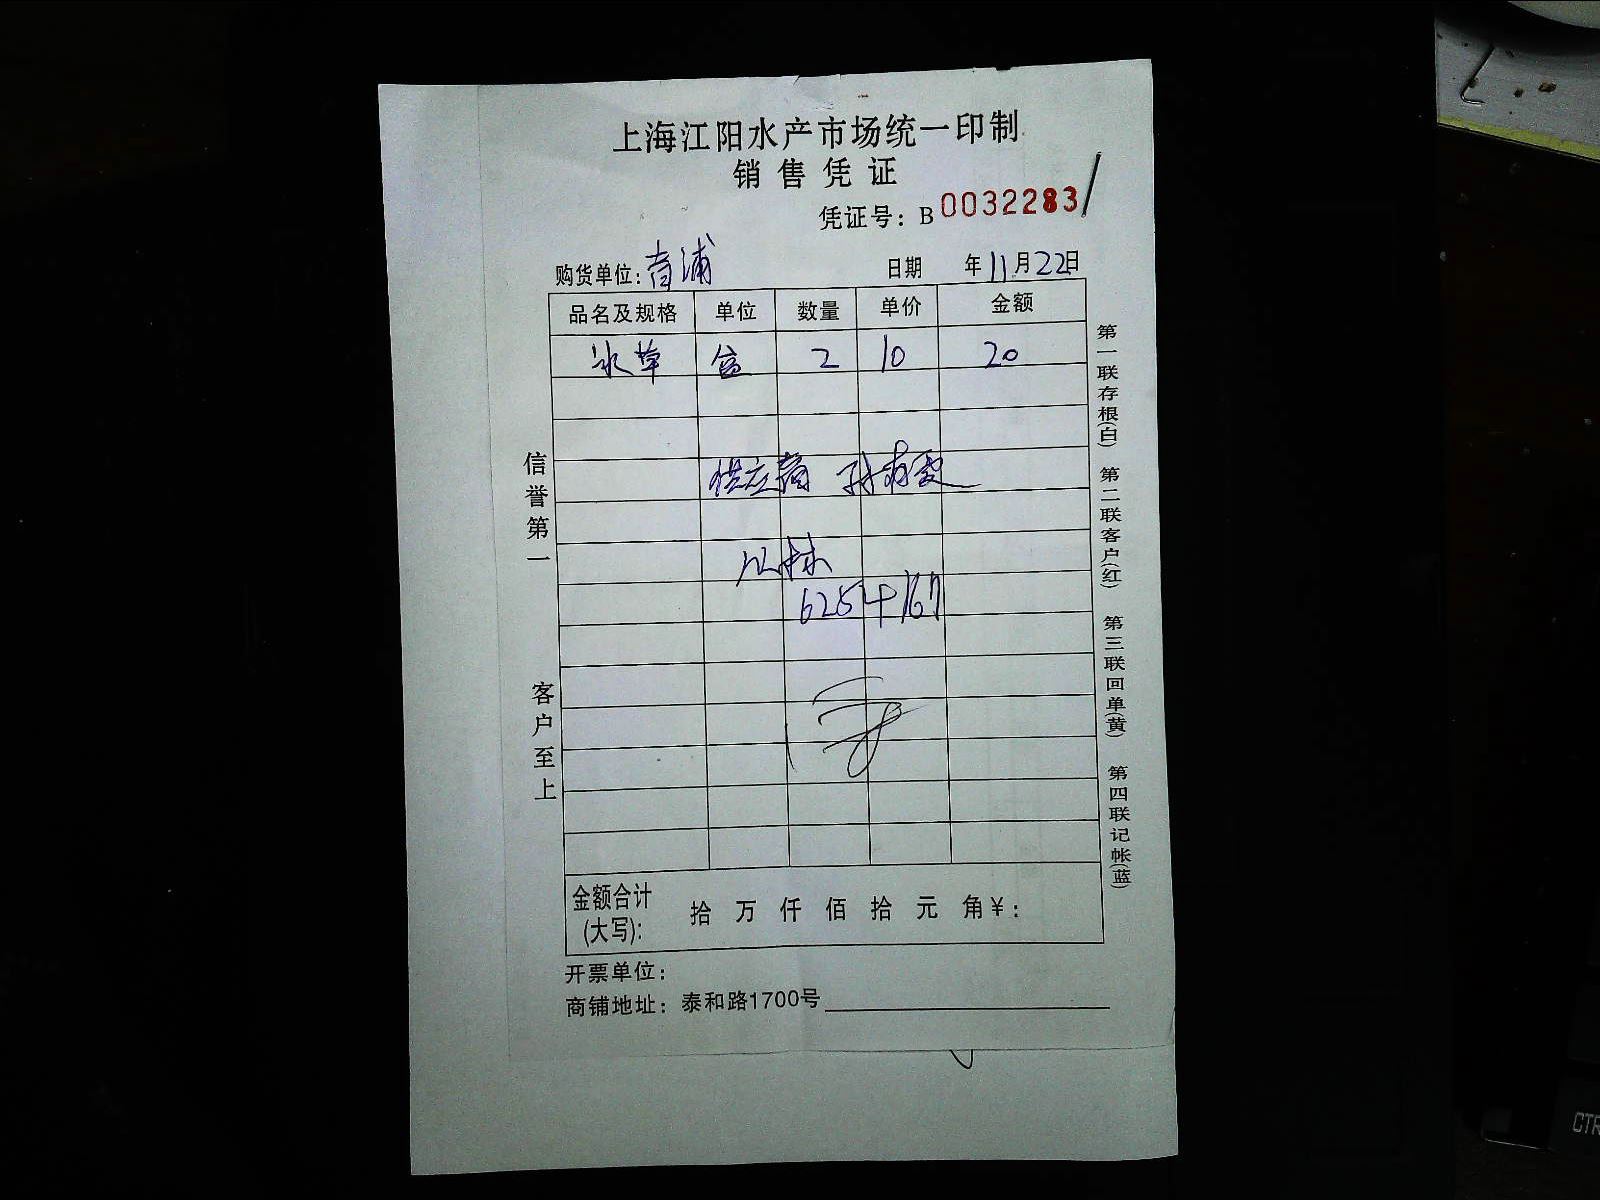 上海江阳水产市场统一印制
销售凭证
凭证号：B 0032283
购货单位：青浦 日期 年11月22日
品名及规格 单位 数量 单价 金额
冰草 盒 2 10 20
供应商 孙
625 + 167
金额合计(大写)： 拾 万 仟 佰 拾 元 角 ¥：
开票单位：
商铺地址：泰和路1700号
信誉第一
客户至上
第一联存根(白) 第二联客户(红) 第三联回单(黄) 第四联记帐(蓝)
CTR